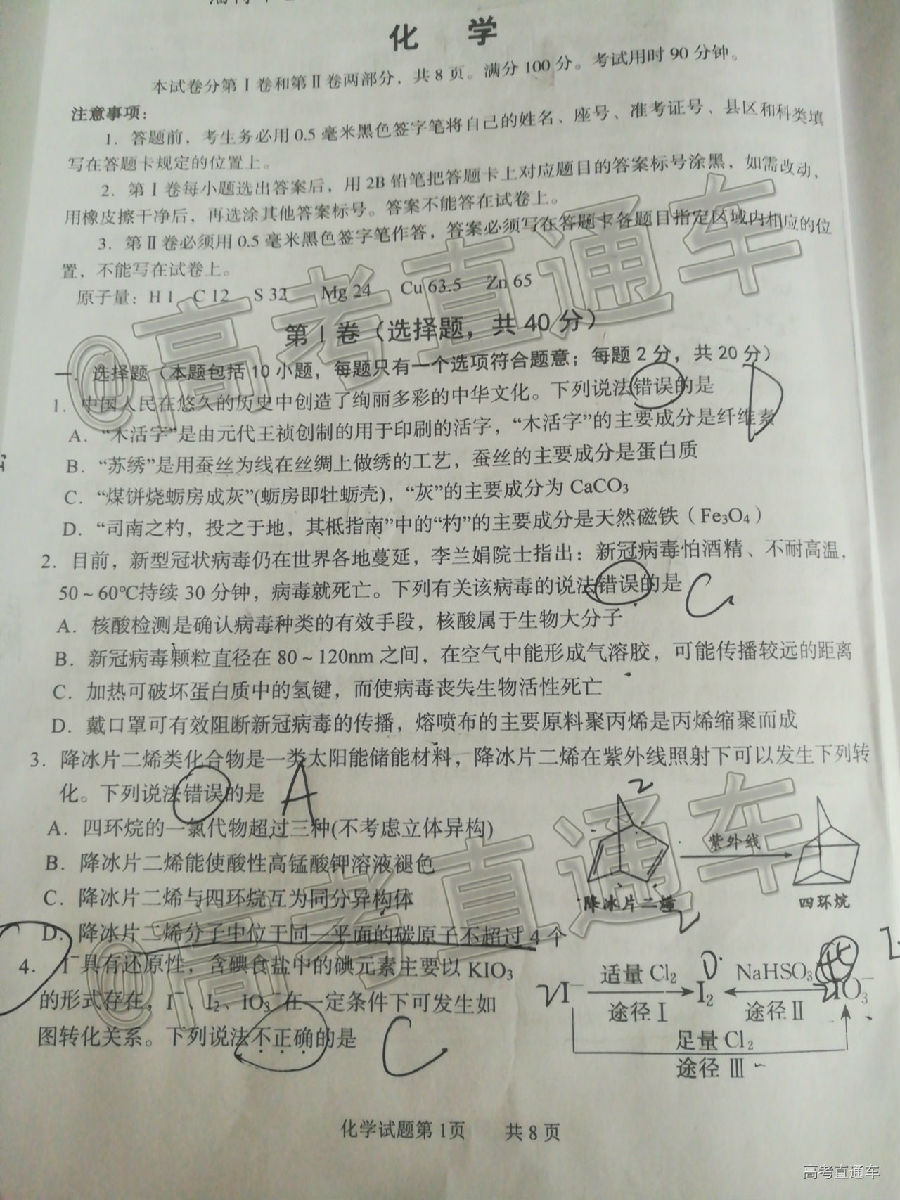 化 学
本试卷分第Ⅰ卷和第Ⅱ卷两部分，共8页。满分100分。考试用时90分钟。
注意事项：
1．答题前，考生务必用0.5毫米黑色签字笔将自己的姓名、座号、准考证号、县区和科类填
写在答题卡规定的位置上。
2．第Ⅰ卷每小题选出答案后，用2B铅笔把答题卡上对应题目的答案标号涂黑，如需改动，
用橡皮擦干净后，再选涂其他答案标号。答案不能答在试卷上。
3．第Ⅱ卷必须用0.5毫米黑色签字笔作答，答案必须写在答题卡各题目指定区域内相应的位
置，不能写在试卷上。
原子量：H 1 C 12 S 32 Mg 24 Cu 63.5 Zn 65
第Ⅰ卷（选择题，共40分）
一 选择题（本题包括10小题，每题只有一个选项符合题意；每题2分，共20分）
1．中国人民在悠久的历史中创造了绚丽多彩的中华文化。下列说法错误的是 D
A．“木活字”是由元代王祯创制的用于印刷的活字，“木活字”的主要成分是纤维素
B．“苏绣”是用蚕丝为线在丝绸上做绣的工艺，蚕丝的主要成分是蛋白质
C．“煤饼烧蛎房成灰”(蛎房即牡蛎壳)，“灰”的主要成分为CaCO₃
D．“司南之杓，投之于地，其柢指南”中的“杓”的主要成分是天然磁铁（Fe₃O₄）
2．目前，新型冠状病毒仍在世界各地蔓延，李兰娟院士指出：新冠病毒怕酒精、不耐高温，
50～60℃持续30分钟，病毒就死亡。下列有关该病毒的说法错误的是 C
A．核酸检测是确认病毒种类的有效手段，核酸属于生物大分子
B．新冠病毒颗粒直径在80～120nm之间，在空气中能形成气溶胶，可能传播较远的距离
C．加热可破坏蛋白质中的氢键，而使病毒丧失生物活性死亡
D．戴口罩可有效阻断新冠病毒的传播，熔喷布的主要原料聚丙烯是丙烯缩聚而成
3．降冰片二烯类化合物是一类太阳能储能材料，降冰片二烯在紫外线照射下可以发生下列转
化。下列说法错误的是 A
A．四环烷的一氯代物超过三种(不考虑立体异构)
B．降冰片二烯能使酸性高锰酸钾溶液褪色
C．降冰片二烯与四环烷互为同分异构体
D．降冰片二烯分子中位于同一平面的碳原子不超过4个
2
紫外线
降冰片二烯
四环烷
4．I⁻具有还原性，含碘食盐中的碘元素主要以KIO₃
的形式存在，I⁻、I₂、IO₃⁻在一定条件下可发生如
图转化关系。下列说法不正确的是 C
I⁻ 适量Cl₂ 途径Ⅰ I₂ NaHSO₃ 途径Ⅱ IO₃⁻
足量Cl₂
途径Ⅲ
化学试题第1页 共8页
@高考直通车
@高考直通车
高考直通车